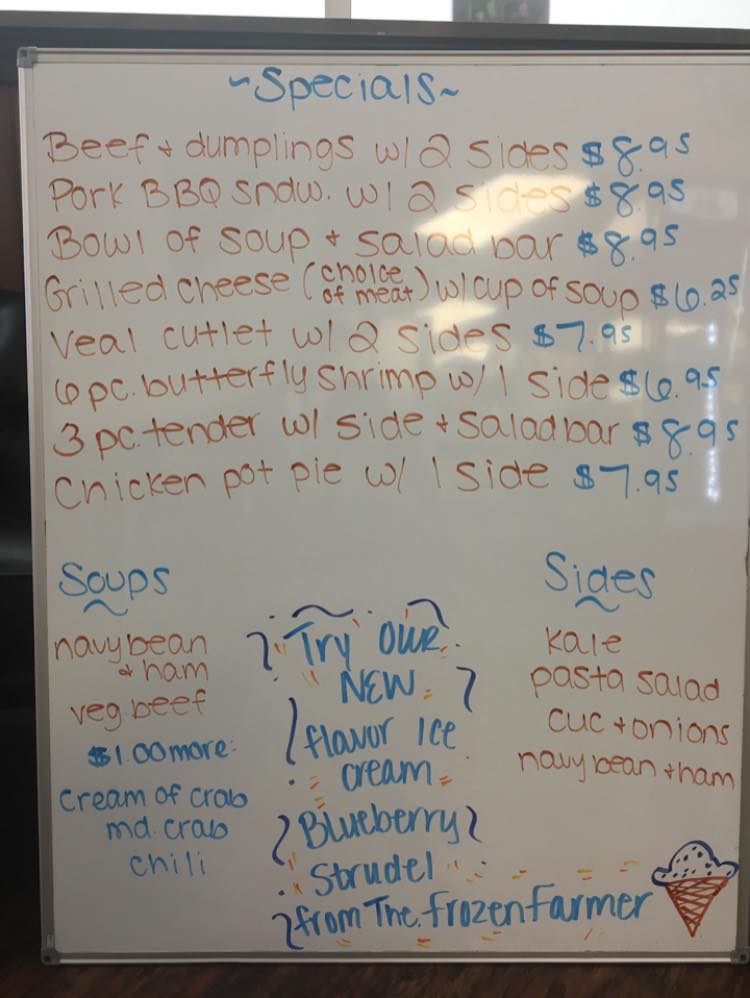 ~Specials~
Beef + dumplings w/ 2 sides $8.95
Pork BBQ sndw. w/ 2 sides $8.95
Bowl of soup + salad bar $8.95
Grilled cheese (choice of meat) w/ cup of soup $6.25
Veal cutlet w/ 2 sides $7.95
6 pc. butterfly shrimp w/ 1 side $6.95
3 pc. tender w/ side + salad bar $8.95
Chicken pot pie w/ 1 side $7.95
Soups
navy bean
+ ham
veg beef
$1.00 more:
cream of crab
md. crab
chili
Try our
NEW
flavor Ice
cream
Blueberry
Strudel
from The Frozen Farmer
Sides
kale
pasta salad
cuc + onions
navy bean + ham